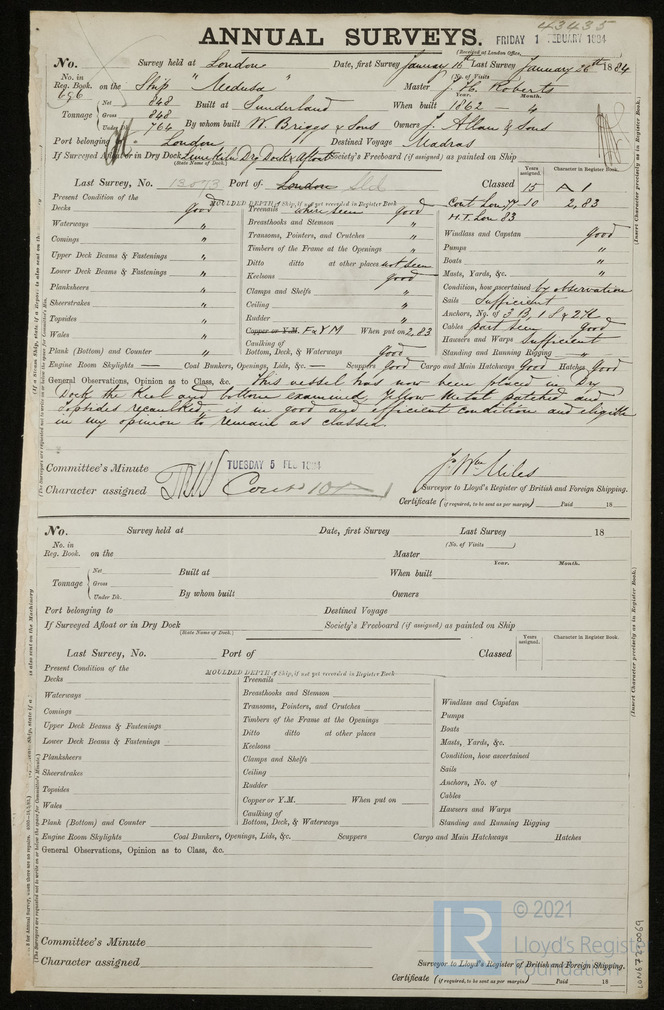 43435
ANNUAL SURVEYS. FRIDAY 1 FEBUARY 1884
(Received at London Office,
No. Survey held at London Date, first Survey January 16th Last Survey January 26th 1884
No. in Reg. Book. 696 on the Ship "Medusa" (No. of Visits) Master J. H. Roberts
Year. Month.
Tonnage Net 848 Built at Sunderland When built 1862 - 4
Gross 848
Under Dk. 764 By whom built W. Briggs & Sons Owners J. Allan & Sons
Port belonging to London Destined Voyage Madras
If Surveyed Afloat or in Dry Dock Limekiln Dry Dock & Afloat Society's Freeboard (if assigned) as painted on Ship
(State Name of Dock.)
Years assigned. Character in Register Book.
Last Survey, No. 13073 Port of London Sld Classed 15 A 1
Present Condition of the MOULDED DEPTH of Ship, if not yet recorded in Register Book Cont Lon 77-10 2,83
Decks good Treenails where seen good H.T. Lon 83
Waterways " Breasthooks and Stemson " Windlass and Capstan good
Comings " Transoms, Pointers, and Crutches " Pumps "
Upper Deck Beams & Fastenings " Timbers of the Frame at the Openings " Boats "
Lower Deck Beams & Fastenings " Ditto ditto at other places not seen Masts, Yards, &c. "
Planksheers " Keelsons good Condition, how ascertained by observation
Sheerstrakes " Clamps and Shelfs " Sails Sufficient
Topsides " Ceiling " Anchors, No. of 3 B, 1 S & 2 K
Wales " Rudder " Cables part seen good
Copper or Y.M. F & Y M When put on 2,83 Hawsers and Warps Sufficient
Plank (Bottom) and Counter " Caulking of Bottom, Deck, & Waterways good Standing and Running Rigging "
Engine Room Skylights — Coal Bunkers, Openings, Lids, &c. — Scuppers good Cargo and Main Hatchways Good Hatches Good
General Observations, Opinion as to Class, &c. This vessel has now been placed in Dry
Dock the Keel and bottom examined, Yellow Metal patched and
Topsides recaulked. is in good and efficient condition and eligible
in my opinion to remain as classed.
Committee's Minute TUESDAY 5 FEB 1884
Jno Wm Miles
Character assigned Surveyor to Lloyd's Register of British and Foreign Shipping.
Certificate (if required, to be sent as per margin) Paid 18
No. Survey held at Date, first Survey Last Survey 18
No. in Reg. Book. on the (No. of Visits) Master
Year. Month.
Tonnage Net Built at When built
Gross
Under Dk. By whom built Owners
Port belonging to Destined Voyage
If Surveyed Afloat or in Dry Dock Society's Freeboard (if assigned) as painted on Ship
(State Name of Dock.)
Years assigned. Character in Register Book.
Last Survey, No. Port of Classed
Present Condition of the MOULDED DEPTH of Ship, if not yet recorded in Register Book
Decks Treenails
Waterways Breasthooks and Stemson Windlass and Capstan
Comings Transoms, Pointers, and Crutches Pumps
Upper Deck Beams & Fastenings Timbers of the Frame at the Openings Boats
Lower Deck Beams & Fastenings Ditto ditto at other places Masts, Yards, &c.
Planksheers Keelsons Condition, how ascertained
Sheerstrakes Clamps and Shelfs Sails
Topsides Ceiling Anchors, No. of
Wales Rudder Cables
Copper or Y.M. When put on Hawsers and Warps
Plank (Bottom) and Counter Caulking of Bottom, Deck, & Waterways Standing and Running Rigging
Engine Room Skylights Coal Bunkers, Openings, Lids, &c. Scuppers Cargo and Main Hatchways Hatches
General Observations, Opinion as to Class, &c.
Committee's Minute
Character assigned Surveyor to Lloyd's Register of British and Foreign Shipping.
Certificate (if required, to be sent as per margin) Paid 18
(Insert Character precisely as in Register Book.)
(Insert Character precisely as in Register Book.)
© 2021
Lloyd's Register
Foundation